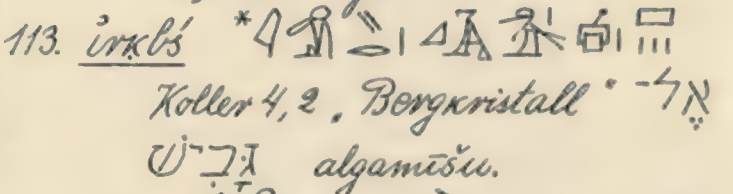 113. ỉrḳbś *
Koller 4,2. Bergkristall אֶל-
גָּבִישׁ algamīšu.